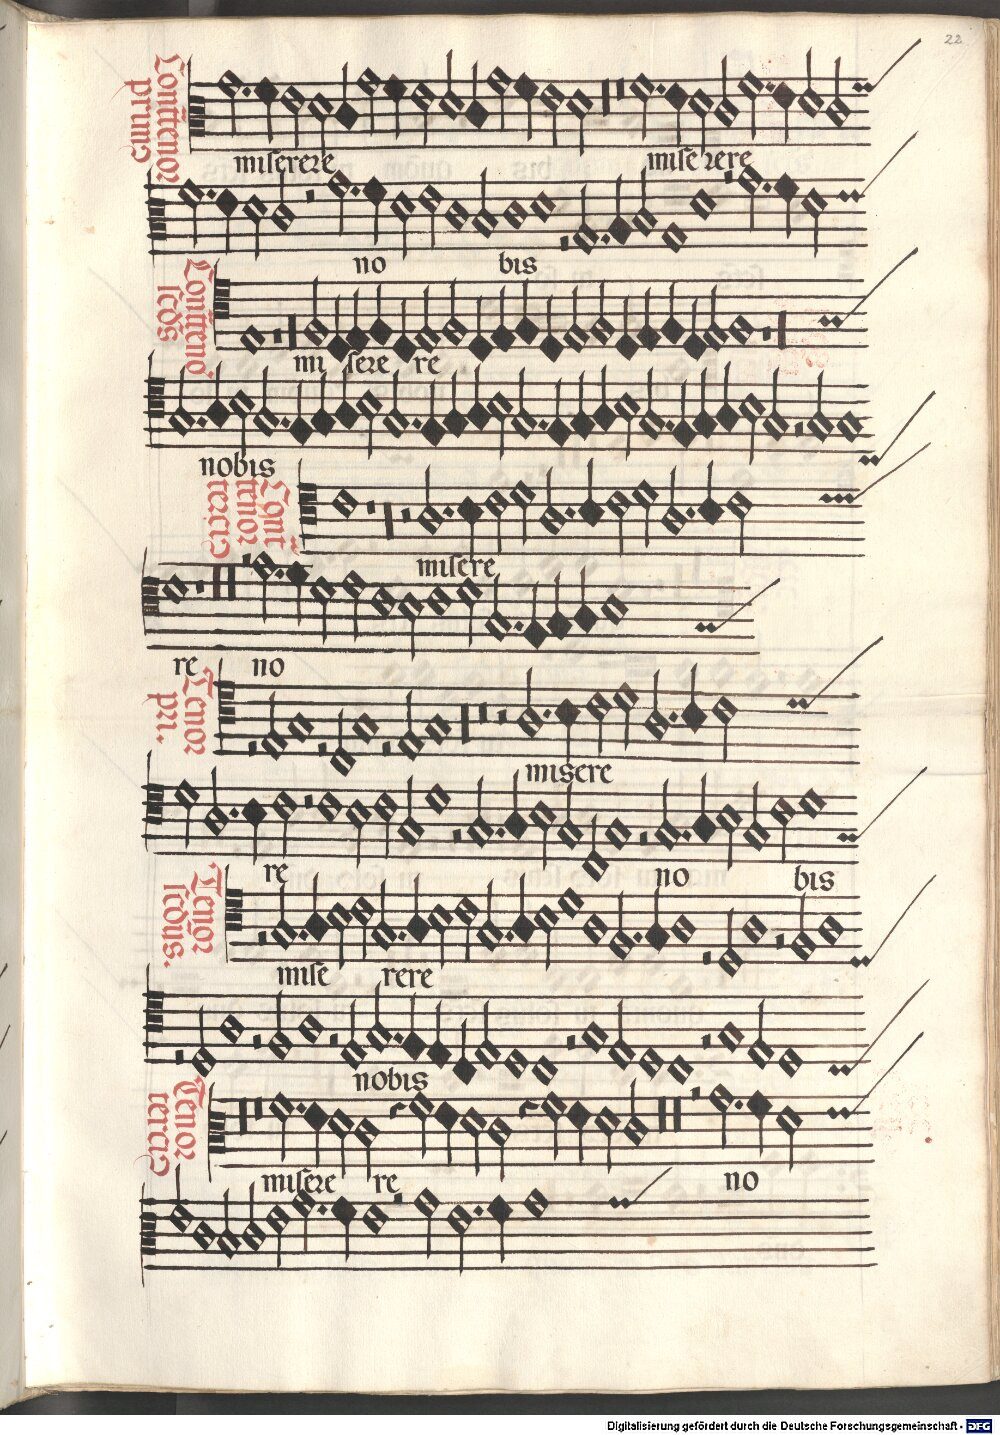 22
Contratenor primus
miserere miserere
no bis
Contratenor scds
mi sere re
nobis
Cont tenor tercius
misere
re no
Tenor pri.
misere
re no bis
Tenor scdus.
mise rere
nobis
Tenor tercius
misere re no
Digitalisierung gefördert durch die Deutsche Forschungsgemeinschaft - DFG